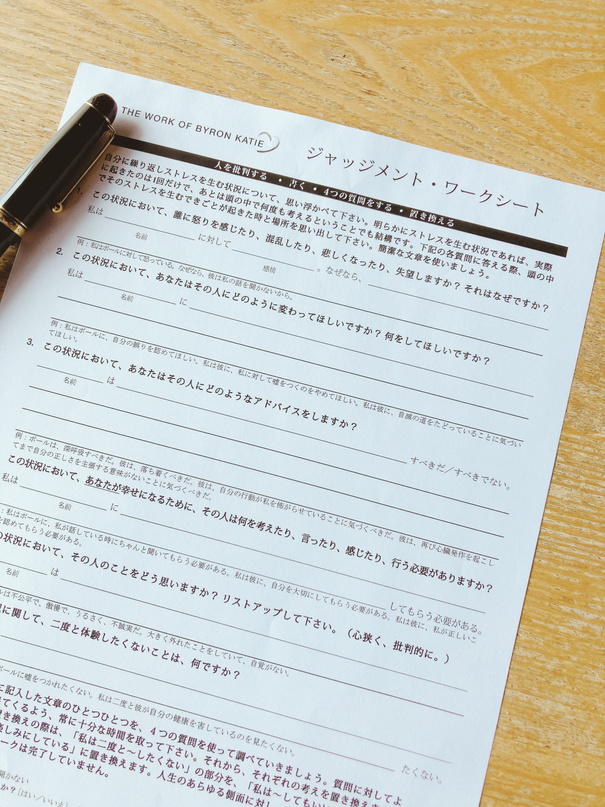 THE WORK OF BYRON KATIE
ジャッジメント・ワークシート
人を批判する ・ 書く ・ 4つの質問をする ・ 置き換える
自分に繰り返しストレスを生む状況について、思い浮かべて下さい。明らかにストレスを生む状況であれば、実際
に起きたのは1回だけで、あとは頭の中で何度も考えるということでも結構です。下記の各質問に答える際、頭の中
でそのストレスを生むできごとが起きた時と場所を思い出して下さい。簡潔な文章を使いましょう。
1. この状況において、誰に怒りを感じたり、混乱したり、悲しくなったり、失望しますか? それはなぜですか?
私は に対して 。なぜなら、
名前 感情
例:私はポールに対して怒っている。なぜなら、彼は私の話を聞かないから。
2. この状況において、あなたはその人にどのように変わってほしいですか? 何をしてほしいですか?
私は に
名前
例:私はポールに、自分の誤りを認めてほしい。私は彼に、私に対して嘘をつくのをやめてほしい。私は彼に、自滅の道をたどっていることに気づい
てほしい。
3. この状況において、あなたはその人にどのようなアドバイスをしますか?
は
名前
すべきだ/すべきでない。
例:ポールは、深呼吸すべきだ。彼は、落ち着くべきだ。彼は、自分の行動が私を怖がらせていることに気づくべきだ。彼は、再び心臓発作を起こし
てまで自分の正しさを主張する意味がないことに気づくべきだ。
この状況において、あなたが幸せになるために、その人は何を考えたり、言ったり、感じたり、行う必要がありますか?
私は に
名前
してもらう必要がある。
:私はポールに、私が話している時にちゃんと聞いてもらう必要がある。私は彼に、自分を大切にしてもらう必要がある。私は彼に、私が正しいこ
を認めてもらう必要がある。
の状況において、その人のことをどう思いますか? リストアップして下さい。(心狭く、批判的に。)
は
名前
ルは不公平で、傲慢で、うるさく、不誠実だ。大きく外れたことをしていて、自覚がない。
に関して、二度と体験したくないことは、何ですか?
たくない。
ポールに嘘をつかれたくない。私は二度と彼が自分の健康を害しているのを見たくない。
に記入した文章のひとつひとつを、4つの質問を使って調べていきましょう。質問に対してよ
てくるよう、常に十分な時間を取って下さい。それから、それぞれの考えを置き換えま
き換えの際は、「私は二度と〜したくない」の部分を、「私は〜してもい
楽しみにしている」に置き換えます。人生のあらゆる側面に対し
ークは完了していません。
聞かない
か?(はい/いいえ